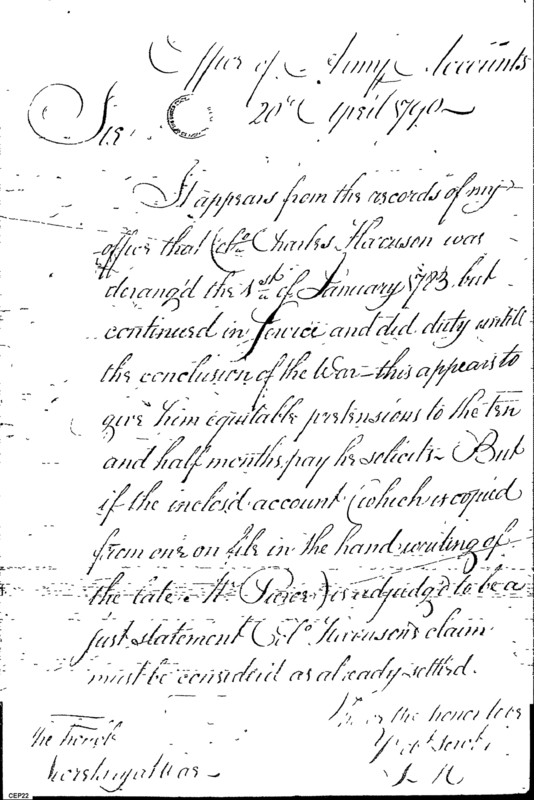 Office of Army Accounts
20th April 1790
Sir
It appears from the records of my
office that Colo Charles was
derang'd the 1st of January 1783 but
continued in Service and did duty untill
the conclusion of the War – this appears to
give him equitable pretensions to the ten
and half months pay he solicits – But
if the inclos'd account (which is copied
from one on file in the hand writing of
the late Mr Pierce) is adjudg'd to be a
just statement Colo claim
must be consider'd as already settled.
the honor to be
The
Secretary at War
CEP22